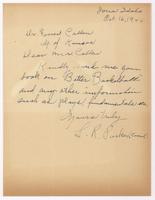 Iona Idaho
Oct 16, 19
Dr. Forrest Callen
U of Kansas
Dear Mr Callen
Kindly send me your
book on Better Basketball
and any other information
such as plays fundamentals etc
Yours truly
L. R.